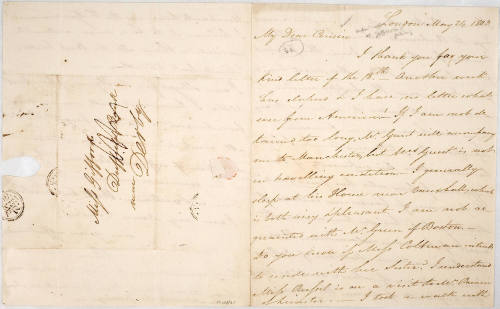 Miss Gifford
Duffield
near Derby
London May 24, 1803
My Dear Cousin
I thank you for your
kind letter of the 18th. Another week
has elapsed & I have no letter what-
ever from America. If I am not de-
tained too long Mr. Guest will accompany
me to Manchester, but Mrs Guest is not
in travelling condition. I generally
sleep at his House near Vauxhall, which
is both airy & pleasant. I am not ac-
quainted with Mr. Green of Boston —
Do you know if Miss Coltman intends
to reside with her Sister? I understand
Miss is on a visit to Mr.
Leicester. — I took a walk with